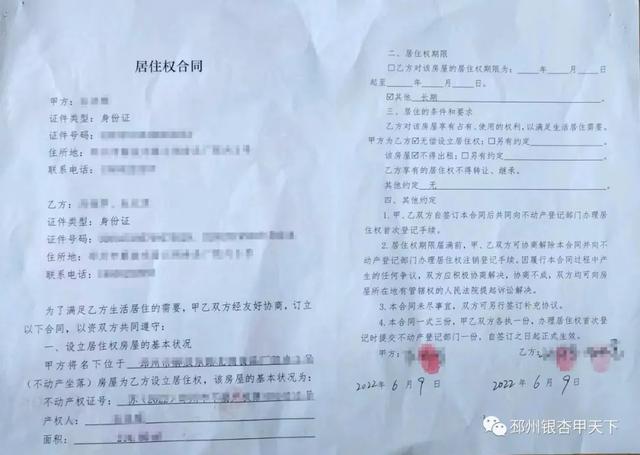 居住权合同
甲方：
证件类型：身份证
证件号码：
住所地：
联系电话：
乙方：
证件类型：身份证
证件号码：
住所地：
联系电话：
为了满足乙方生活居住的需要，甲乙双方经友好协商，订立
以下合同，以资双方共同遵守：
一、设立居住权房屋的基本状况
甲方将名下位于
（不动产坐落）房屋为乙方设立居住权，该房屋的基本状况为：
不动产权证号：
产权人：
面积：
二、居住权期限
☐乙方对该房屋的居住权期限为：____年____月____日
起至____年____月____日。
☑其他 长期
三、居住的条件和要求
乙方对该房屋享有占有、使用的权利，以满足生活居住需要。
甲方为乙方☑无偿设立居住权；☐另有约定
该房屋☑不得出租；☐另有约定
乙方享有的居住权不得转让、继承。
其他约定 无
四、其他约定
1.甲、乙双方自签订本合同后共同向不动产登记部门办理居
住权首次登记手续。
2.居住权期限届满前，甲、乙双方可协商解除本合同并向不
动产登记部门办理居住权注销登记手续。因履行本合同过程中产
生的任何争议，双方应积极协商解决，协商不成，双方均可向房
屋所在地有管辖权的人民法院提起诉讼解决。
3.本合同未尽事宜，双方可另行签订补充协议。
4.本合同一式三份，甲乙双方各执一份，办理居住权首次登
记时提交不动产登记部门一份，自签订之日起正式生效。
甲方： 乙方：
2022年6月9日 2022年6月9日
邳州银杏甲天下